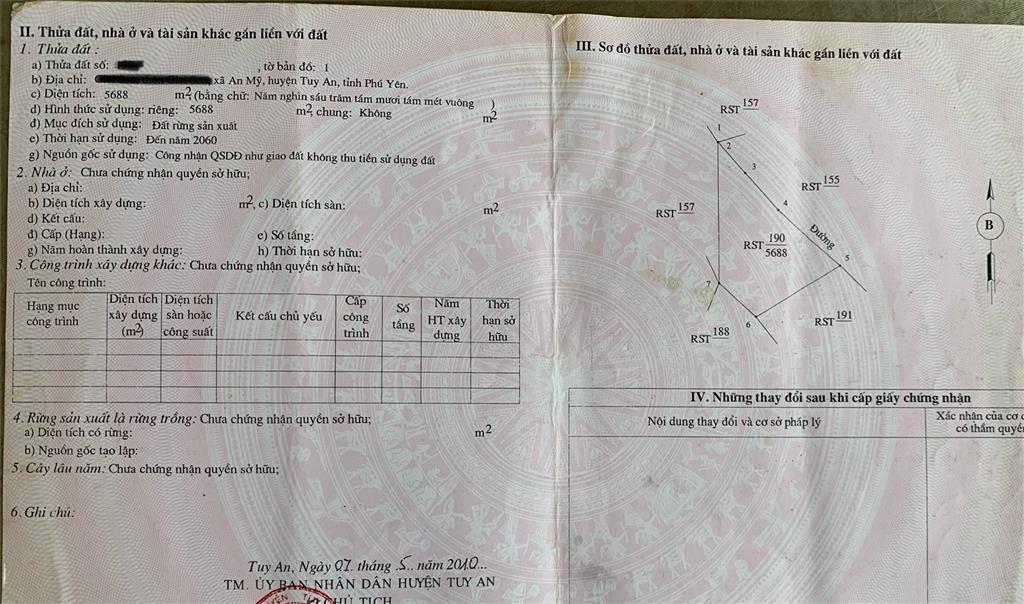 II. Thửa đất, nhà ở và tài sản khác gắn liền với đất
1. Thửa đất :
a) Thửa đất số: , tờ bản đồ: 1
b) Địa chỉ: xã An Mỹ, huyện Tuy An, tỉnh Phú Yên.
c) Diện tích: 5688 m2, (bằng chữ: Năm nghìn sáu trăm tám mươi tám mét vuông )
d) Hình thức sử dụng: riêng: 5688 m2, chung: Không m2
đ) Mục đích sử dụng: Đất rừng sản xuất
e) Thời hạn sử dụng: Đến năm 2060
g) Nguồn gốc sử dụng: Công nhận QSDĐ như giao đất không thu tiền sử dụng đất
2. Nhà ở: Chưa chứng nhận quyền sở hữu;
a) Địa chỉ:
b) Diện tích xây dựng: m2, c) Diện tích sàn: m2
d) Kết cấu:
đ) Cấp (Hạng): e) Số tầng:
g) Năm hoàn thành xây dựng: h) Thời hạn sở hữu:
3. Công trình xây dựng khác: Chưa chứng nhận quyền sở hữu;
Tên công trình:
Hạng mục công trình
Diện tích xây dựng (m2)
Diện tích sàn hoặc công suất
Kết cấu chủ yếu
Cấp công trình
Số tầng
Năm HT xây dựng
Thời hạn sở hữu
4. Rừng sản xuất là rừng trồng: Chưa chứng nhận quyền sở hữu;
a) Diện tích có rừng: m2
b) Nguồn gốc tạo lập:
5. Cây lâu năm: Chưa chứng nhận quyền sở hữu;
6. Ghi chú:
Tuy An, Ngày 07 tháng 5 năm 2010
TM. ỦY BAN NHÂN DÂN HUYỆN TUY AN
CHỦ TỊCH
III. Sơ đồ thửa đất, nhà ở và tài sản khác gắn liền với đất
RST 157
1
2
3
RST 155
4
RST 157
Đường
RST 190
5688
5
7
6
RST 191
RST 188
B
IV. Những thay đổi sau khi cấp giấy chứng nhận
Nội dung thay đổi và cơ sở pháp lý
Xác nhận của cơ
có thẩm quyề